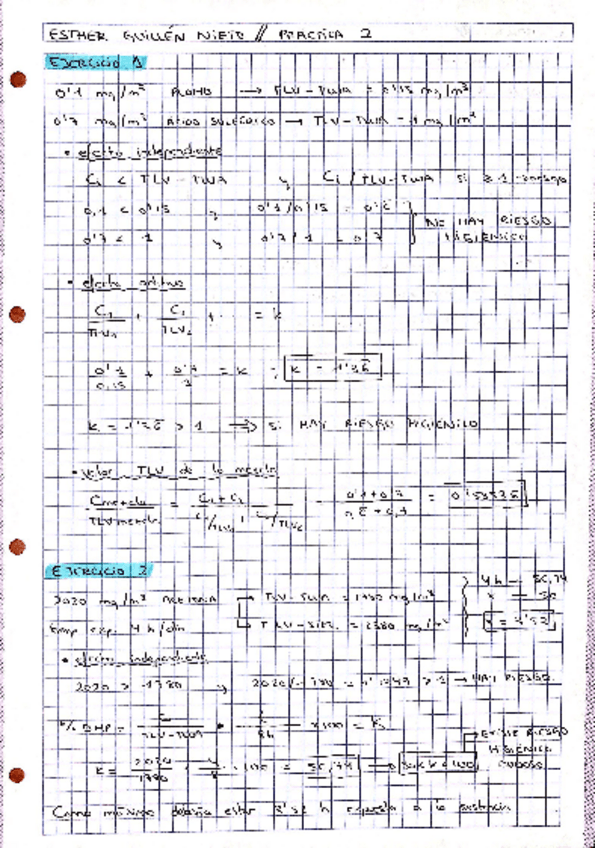 ESTHER GUILLÉN NIETO // PRACTICA 2
EJERCICIO 1
0'1 mg/m³ PLOMO → TLV-TWA = 0'15 mg/m³
0'7 mg/m³ ÁCIDO SULFÚRICO → TLV-TWA = 1 mg/m³
• efecto independiente
Ci < TLV-TWA y Ci / TLV-TWA si ≥ 1 → riesgo
0,1 < 0'15 y 0'1/0'15 = 0'6
0'7 < 1 y 0'7/1 = 0'7
NO HAY RIESGO
HIGIÉNICO
• efecto aditivo
C1/TLV1 + C2/TLV2 + = K
0'1/0,15 + 0'7/1 = K ; K = 1'36
K = 1'36 > 1 → SI HAY RIESGO HIGIENICO
• valor TLV de la mezcla
Cmezcla/TLVmezcla = C1+C2/C1/TLV1 + C2/TLV2 = 0'1+0'7/0,6+0,7 =
EJERCICIO 2
2020 mg/m³ ACETONA → TLV-TWA = 1780 mg/m³
temp exp. 4 h/día → TLV-STEL = 2380 mg/m³
4 h — 56,74
x — 50
• efecto independiente
2020 > 1780 y 2020/1780 = > 1 → HAY RIESGO.
% EMP = C/TLV-TWA · t/8h · x100 = K
K = 2020/1780 · 4/8 · 100 = 56,74 → 50 < K < 100
EXISTE RIESGO
HIGIÉNICO
DUDOSO
Como máximo debería estar 3'52 h expuesta a la sustancia